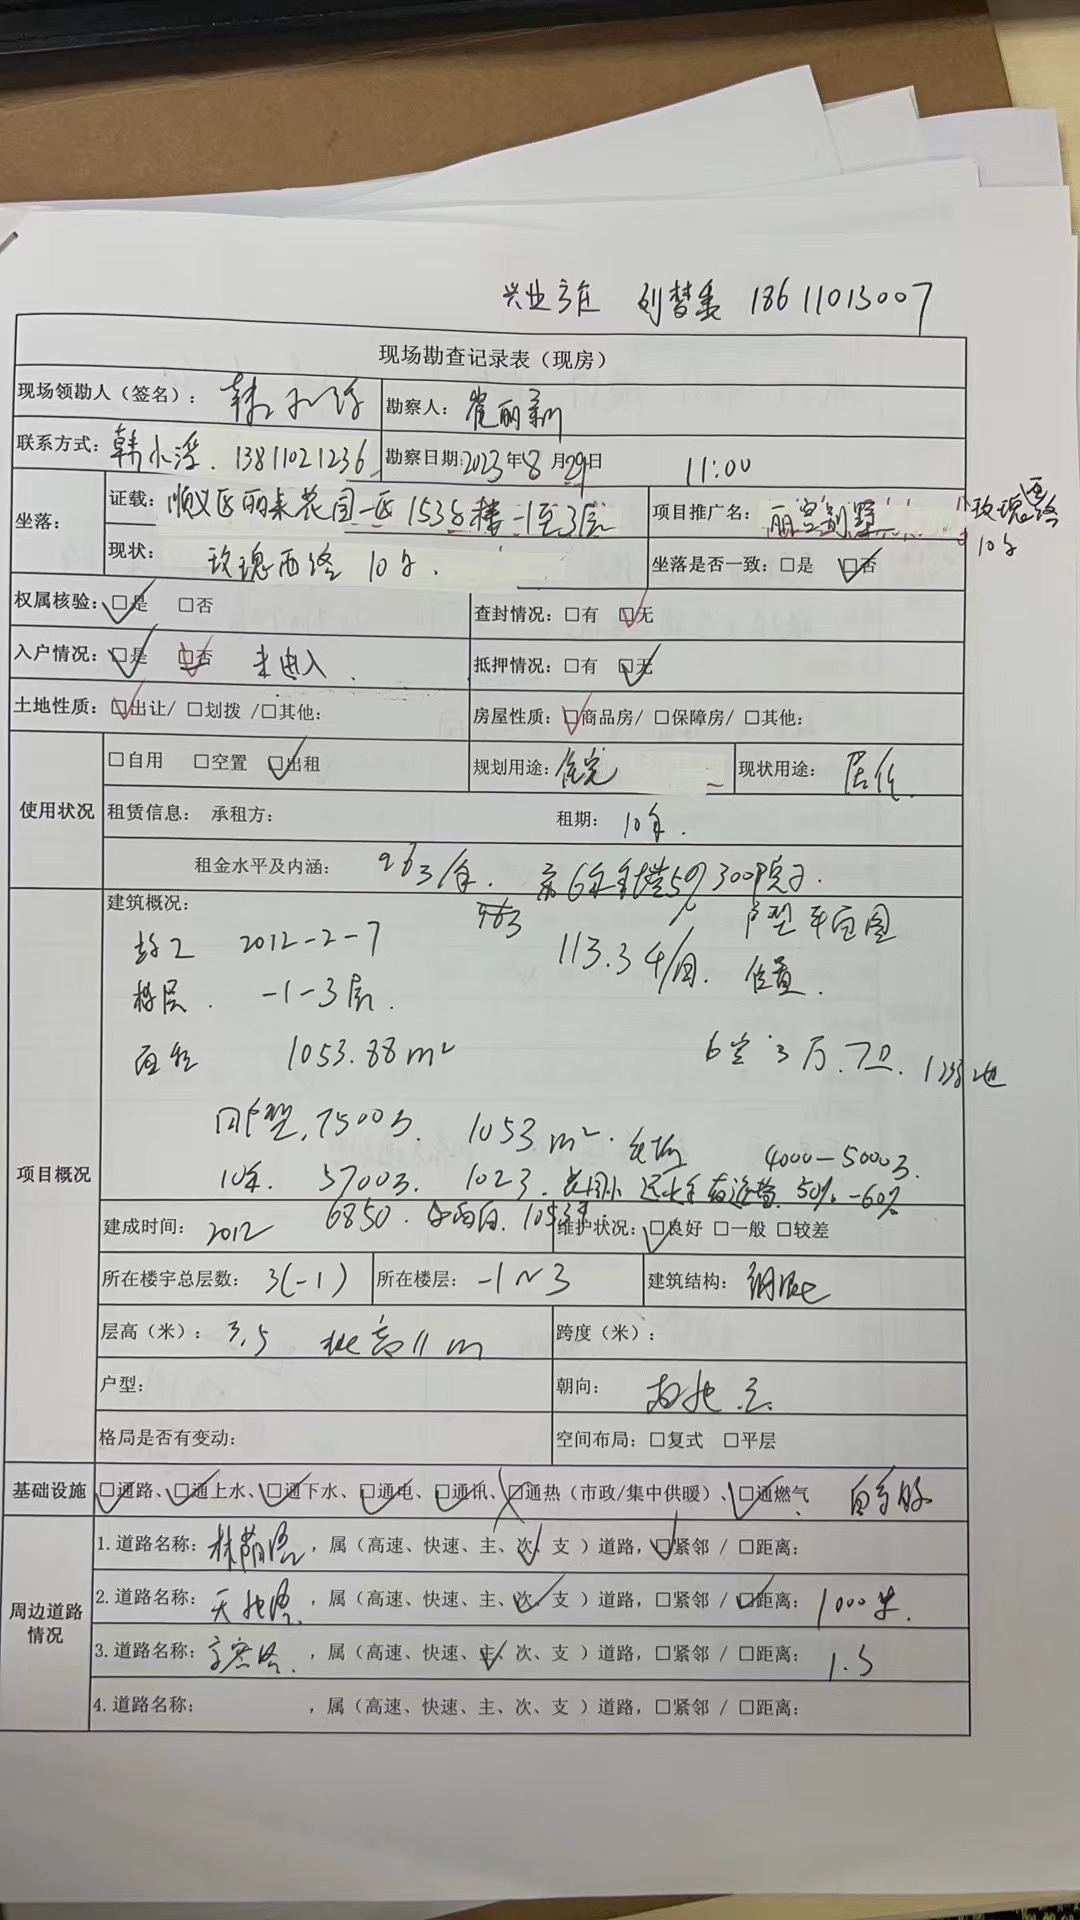 兴业 18611013007
现场勘查记录表（现房）
现场领勘人（签名）： 韩 勘察人： 崔丽
联系方式： 韩小 13811021236 勘察日期：2023年8月29日 11:00
坐落： 证载： 顺义区丽来花园一区153号楼-1至3层 项目推广名： 丽宫别墅 玫瑰西路
10号
现状： 玫瑰西路10号. 坐落是否一致：□是 ☑否
权属核验：☑是 □否 查封情况：□有 ☑无
入户情况：☑是 ☑否 未进入. 抵押情况：□有 ☑无
土地性质：☑出让/ □划拨 /□其他： 房屋性质：☑商品房/ □保障房/ □其他：
使用状况 □自用 □空置 ☑出租 规划用途：住宅 现状用途： 居住
租赁信息： 承租方： 租期： 10年.
租金水平及内涵： 963/年. 300 院子.
项目概况 建筑概况：
竣工 2012-2-7 113.3 /月. 户型平面图
楼层. -1-3层. 位置.
面积 1053.88m²
6室3厅.7卫.
同户型, 7500万. 1053m².
10年. 5700万. 1023. 4000-5000万.
50%-60%
6850.
建成时间： 2012 维护状况：☑良好 □一般 □较差
所在楼宇总层数： 3(-1) 所在楼层： -1~3 建筑结构： 钢混
层高（米）： 3.5 挑高11m 跨度（米）：
户型： 朝向： 南北
格局是否有变动： 空间布局：□复式 □平层
基础设施 ☑通路、☑通上水、☑通下水、☑通电、☑通讯、☒通热（市政/集中供暖）、☑通燃气
周边道路情况 1.道路名称： 林荫路，属（高速、快速、主、次、支 ）道路，☑紧邻 / □距离：
2.道路名称： 天北路，属（高速、快速、主、次、支 ）道路，□紧邻 / ☑距离： 1000米.
3.道路名称： 京密路，属（高速、快速、主、次、支 ）道路，□紧邻 / □距离： 1.5
4.道路名称： ，属（高速、快速、主、次、支 ）道路，□紧邻 / □距离：